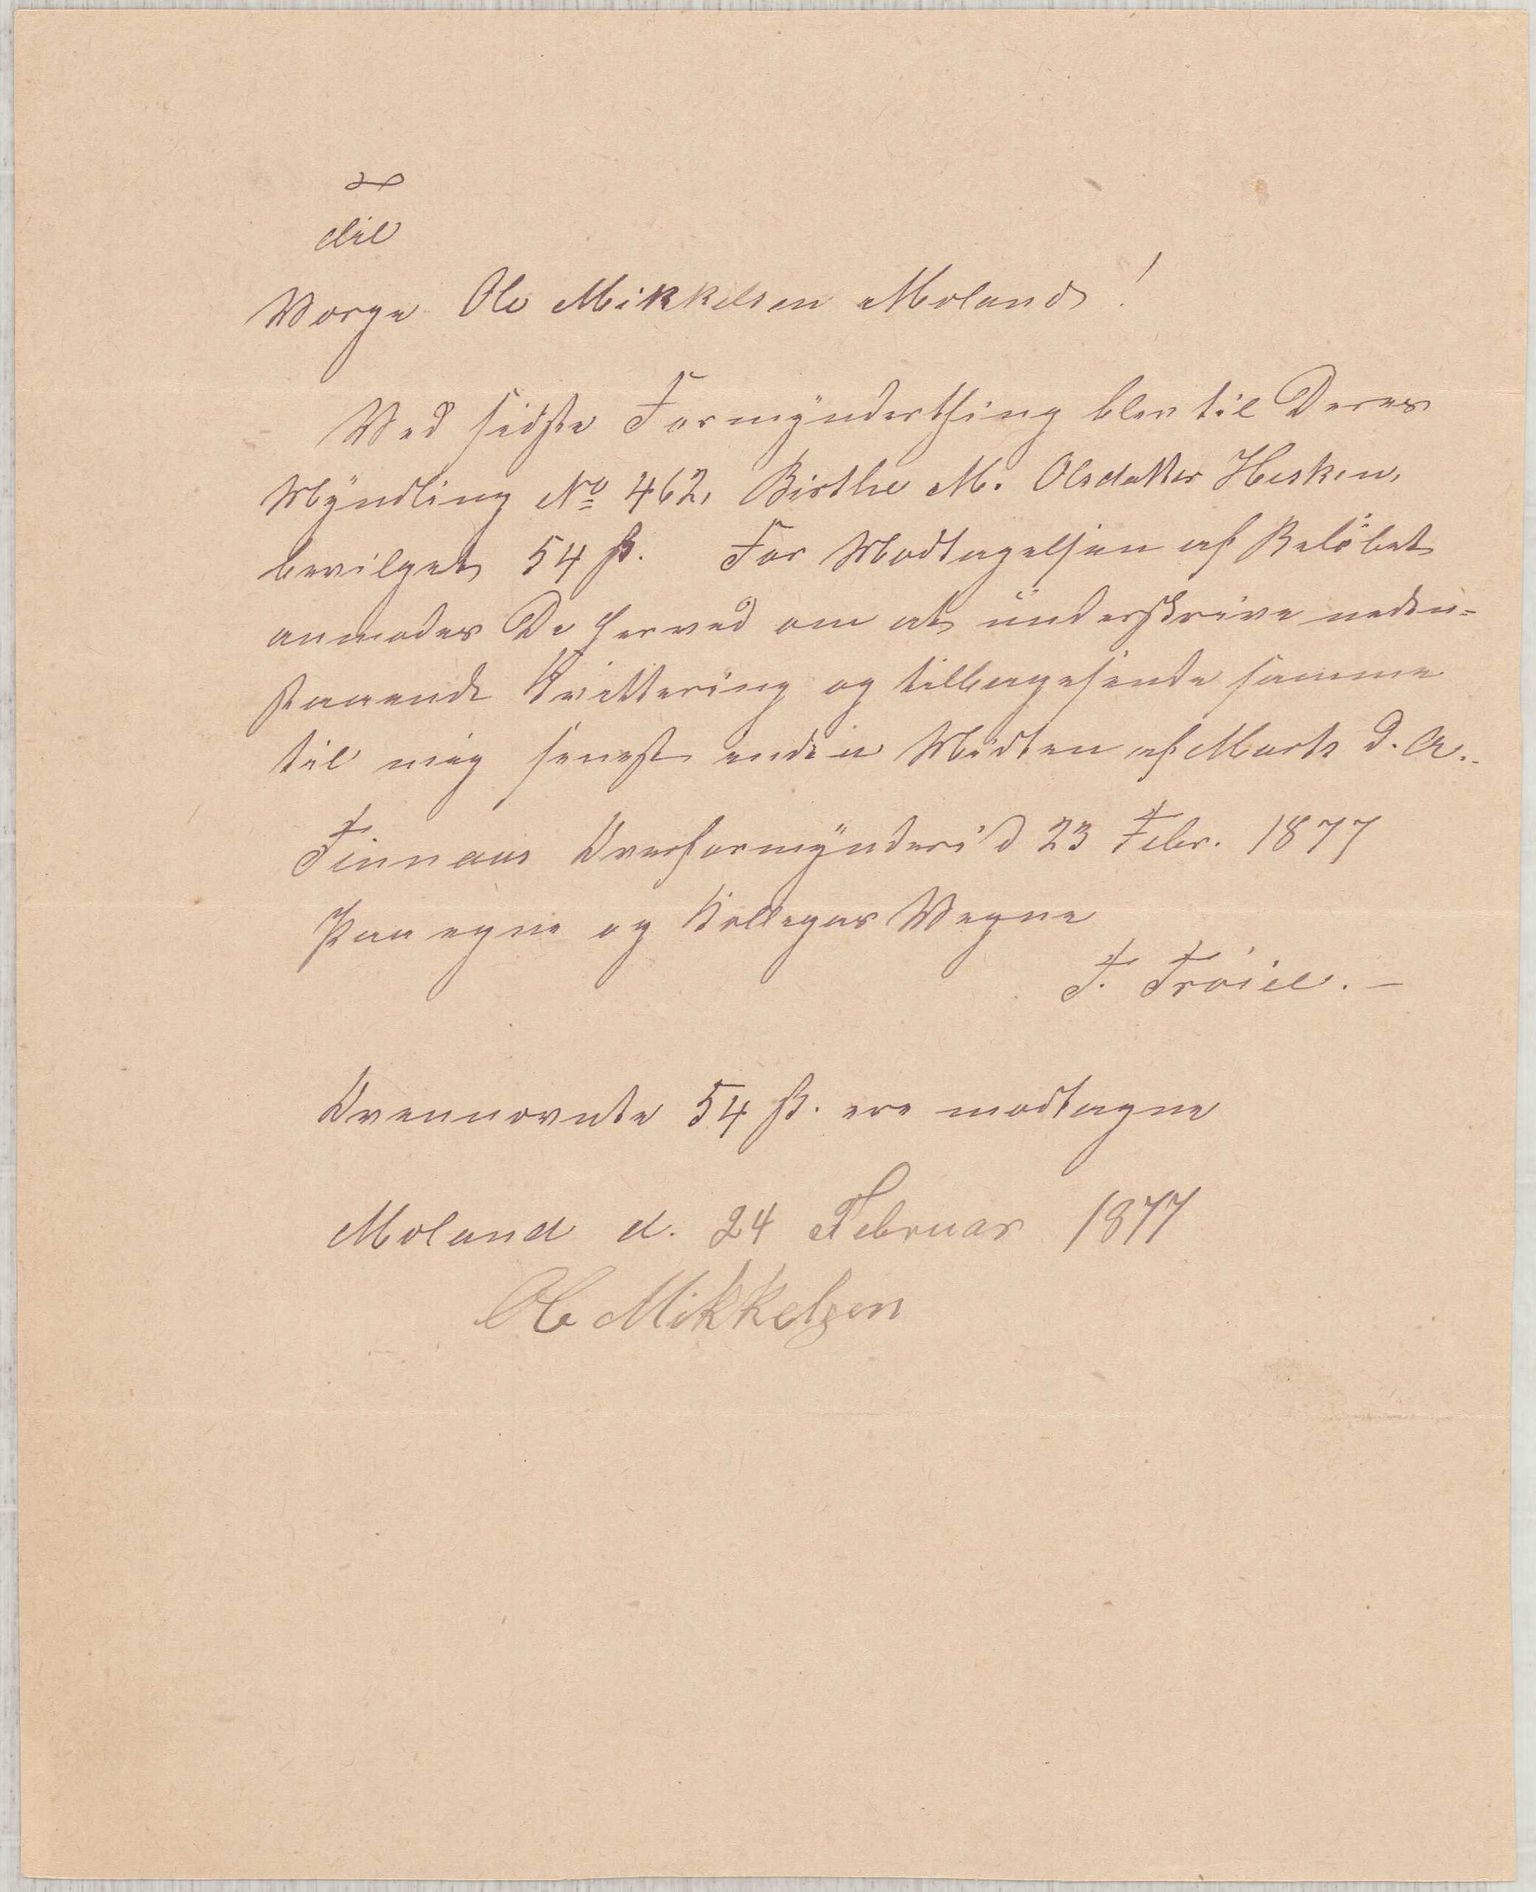 Til
Værge Ole Mikkelsen Moland!
Ved sidste Formynderthing blev til Deres
Myndling No 462, Birthe M. Olsdatter Hesken,
bevilget 54 ß. For Modtagelsen af Beløbet
anmodes De herved om at underskrive neden-
staaende Kvittering og tilbagesende samme
til mig senest inden Midten af Marts d. A.
Finnaas Overformynderi d 23 Febr. 1877
Paa egne og Kollegas Vegne
F. Trøiel. —
Ovennævnte 54 ß. ere modtagne
Moland d. 24 Februar 1877
Ole Mikkelsen